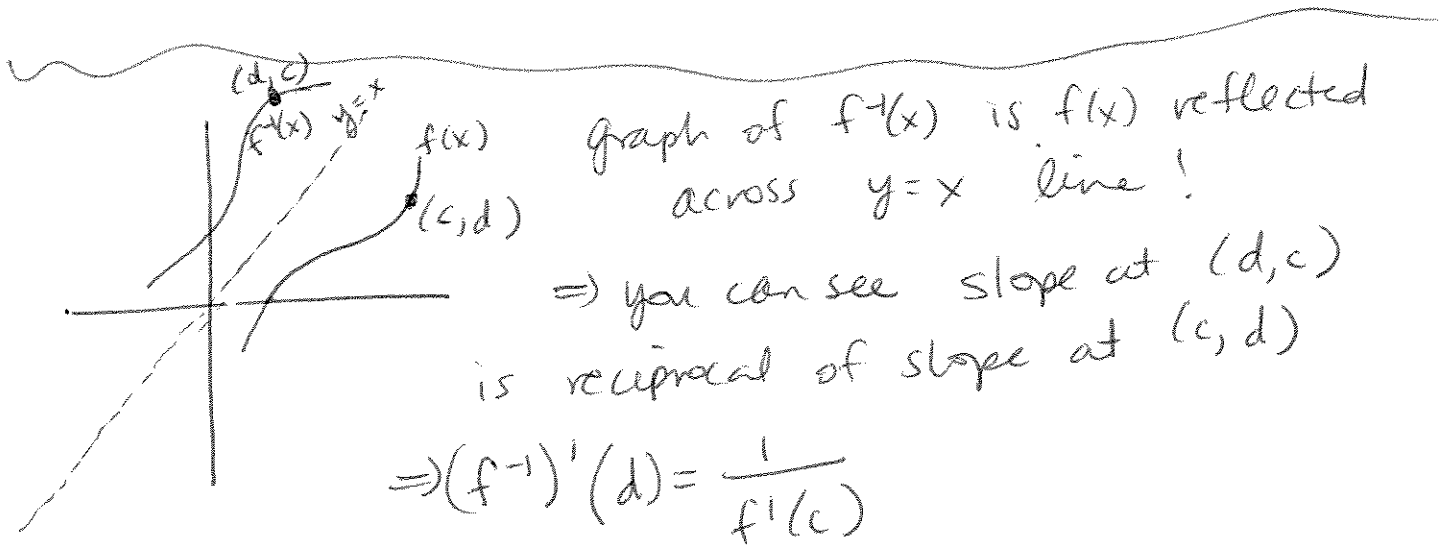 (d, c)
f⁻¹(x)
y=x
f(x)
(c, d)
graph of f⁻¹(x) is f(x) reflected
across y=x line!
⇒ you can see slope at (d, c)
is reciprocal of slope at (c, d)
⇒ (f⁻¹)'(d) = 1/f'(c)